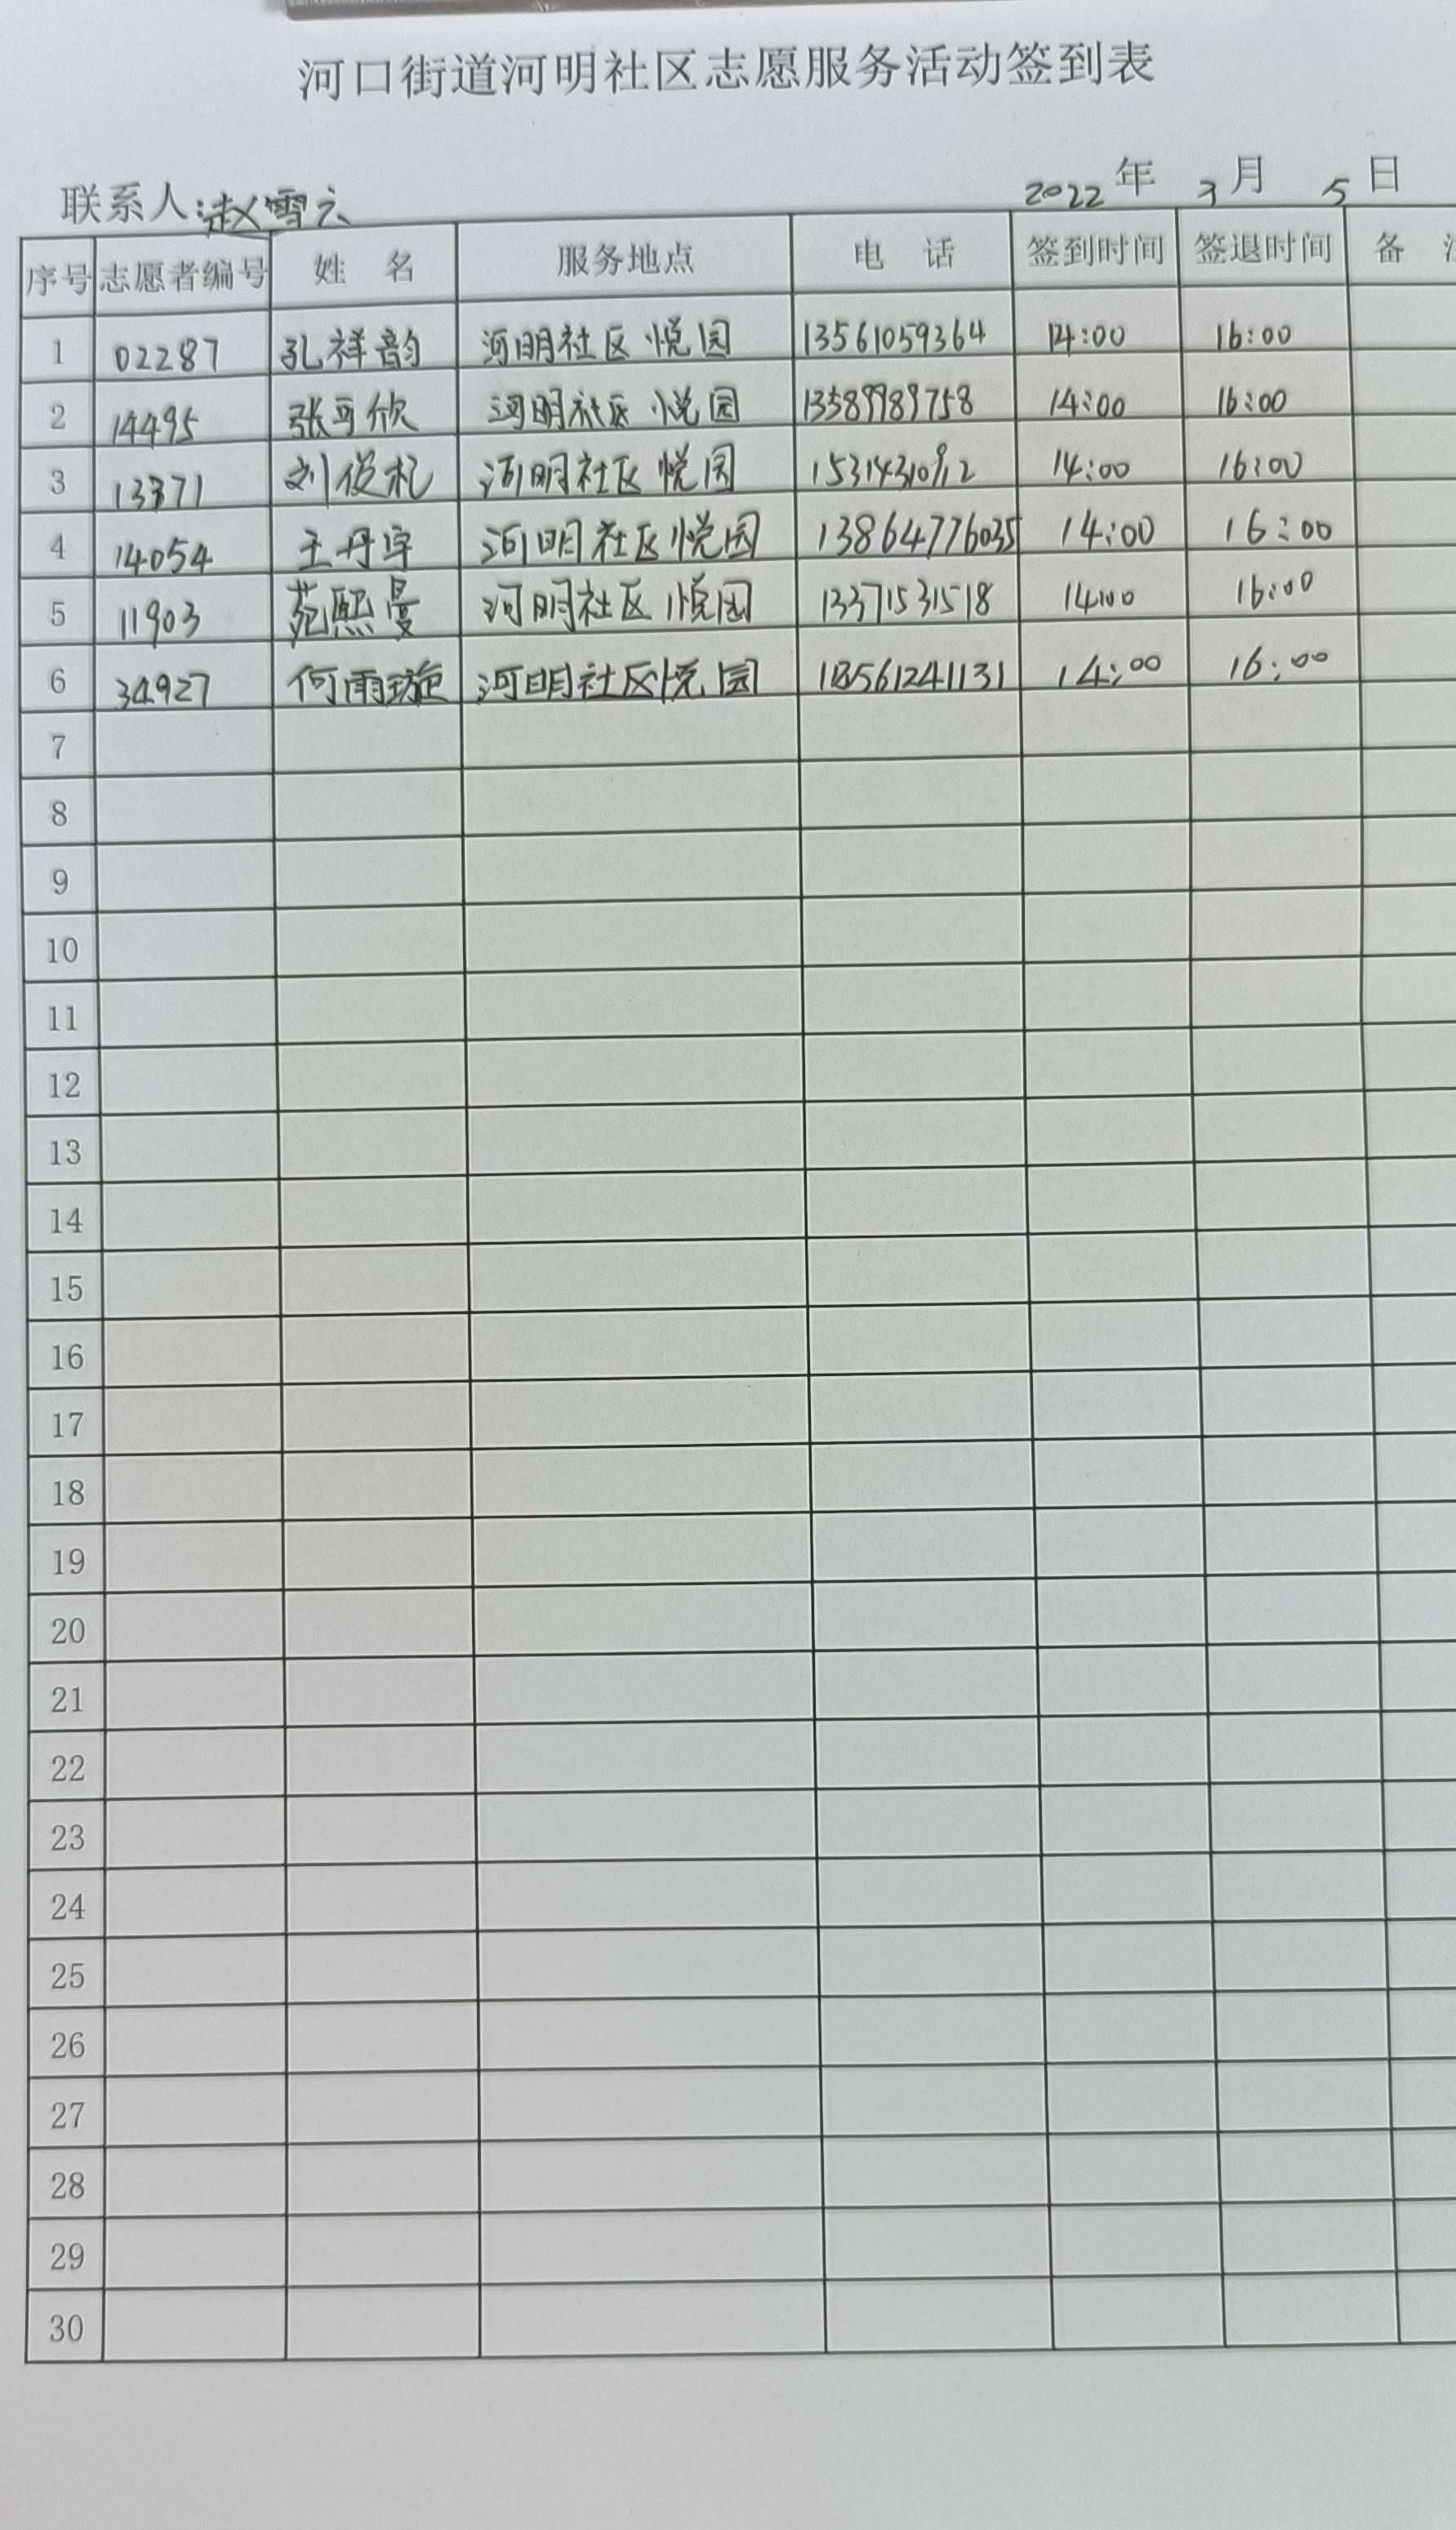 河口街道河明社区志愿服务活动签到表
联系人:赵雪云 2022年 3月 5日
序号 志愿者编号 姓 名 服务地点 电 话 签到时间 签退时间 备
1 02287 孔祥韵 河明社区 悦园 13561059364 14:00 16:00
2 14495 张可欣 河明社区 悦园 13589989758 14:00 16:00
3 13371 刘俊札 河明社区 悦园 14:00 16:00
4 14054 王丹宇 河明社区悦园 13864776035 14:00 16:00
5 11903 范熙曼 河明社区 悦园 13371531518 14:00 16:00
6 34927 何雨璇 河明社区悦园 13561241131 14:00 16:00
7
8
9
10
11
12
13
14
15
16
17
18
19
20
21
22
23
24
25
26
27
28
29
30